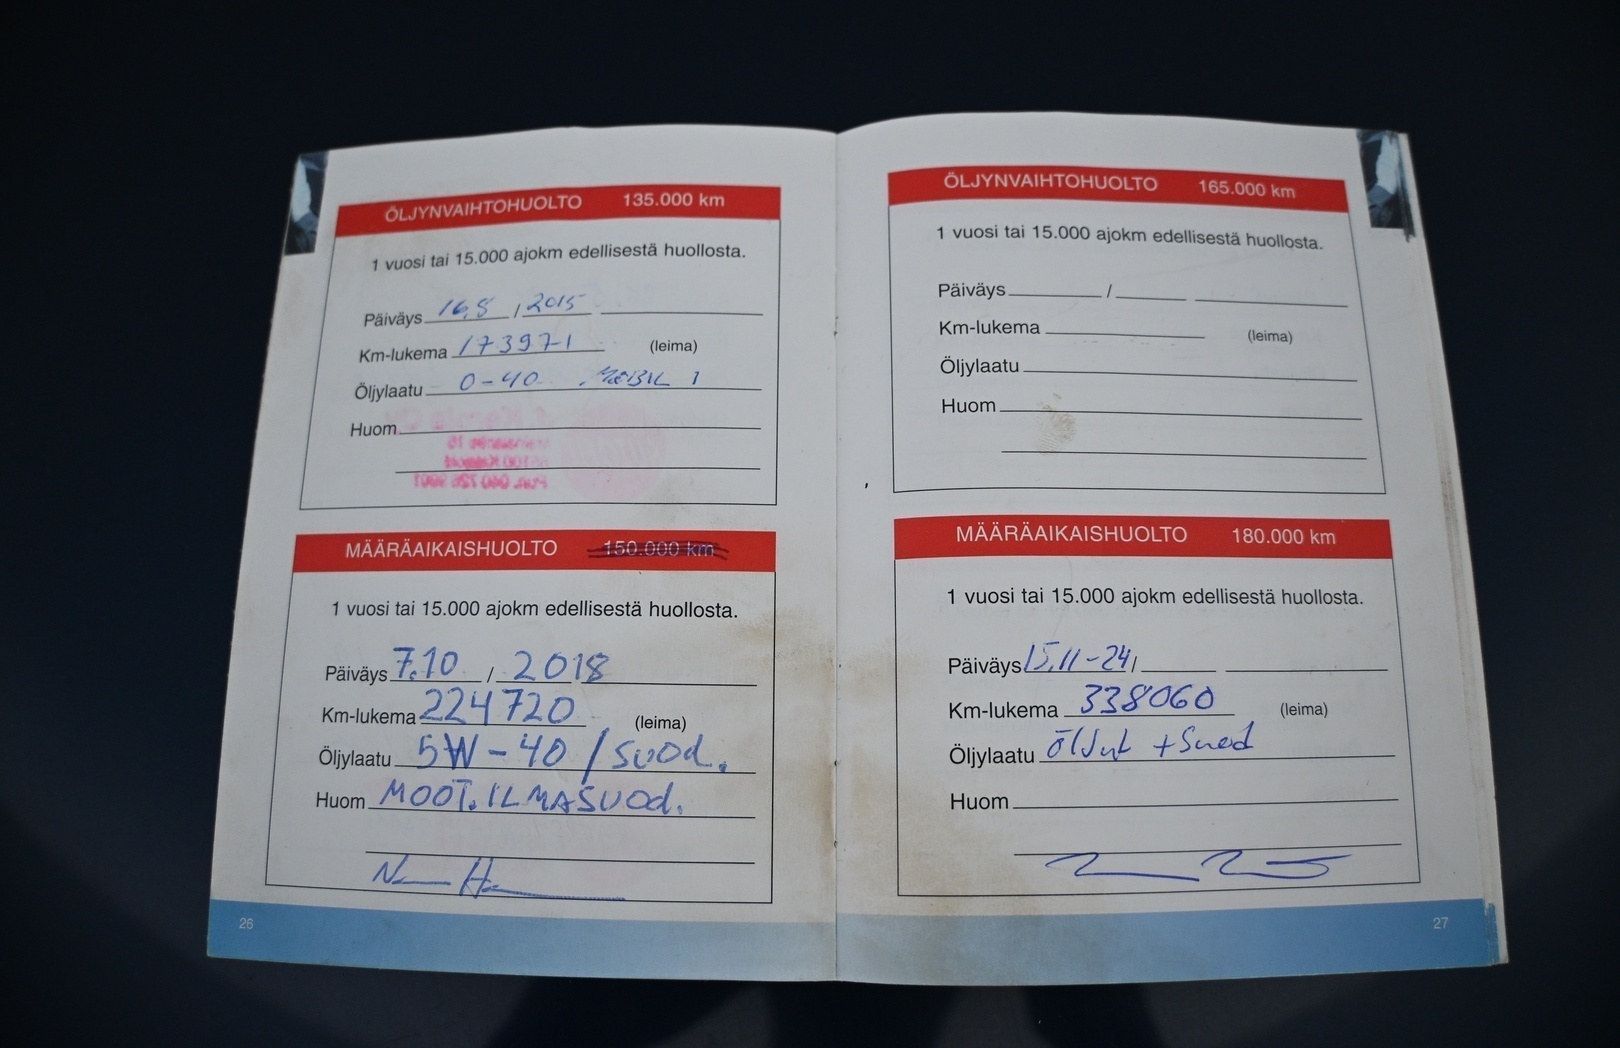 ÖLJYNVAIHTOHUOLTO 135.000 km
1 vuosi tai 15.000 ajokm edellisestä huollosta.
Päiväys 16.8 / 2015
Km-lukema 173971 (leima)
Öljylaatu 0-40 MOBIL 1
Huom
MÄÄRÄAIKAISHUOLTO 150.000 km
1 vuosi tai 15.000 ajokm edellisestä huollosta.
Päiväys 7.10 / 2018
Km-lukema 224720 (leima)
Öljylaatu 5W-40 / SUOD.
Huom MOOT.ILMASUOD.
26
ÖLJYNVAIHTOHUOLTO 165.000 km
1 vuosi tai 15.000 ajokm edellisestä huollosta.
Päiväys /
Km-lukema (leima)
Öljylaatu
Huom
MÄÄRÄAIKAISHUOLTO 180.000 km
1 vuosi tai 15.000 ajokm edellisestä huollosta.
Päiväys 15.11-24 /
Km-lukema 338060 (leima)
Öljylaatu öljyt + Suod
Huom
27